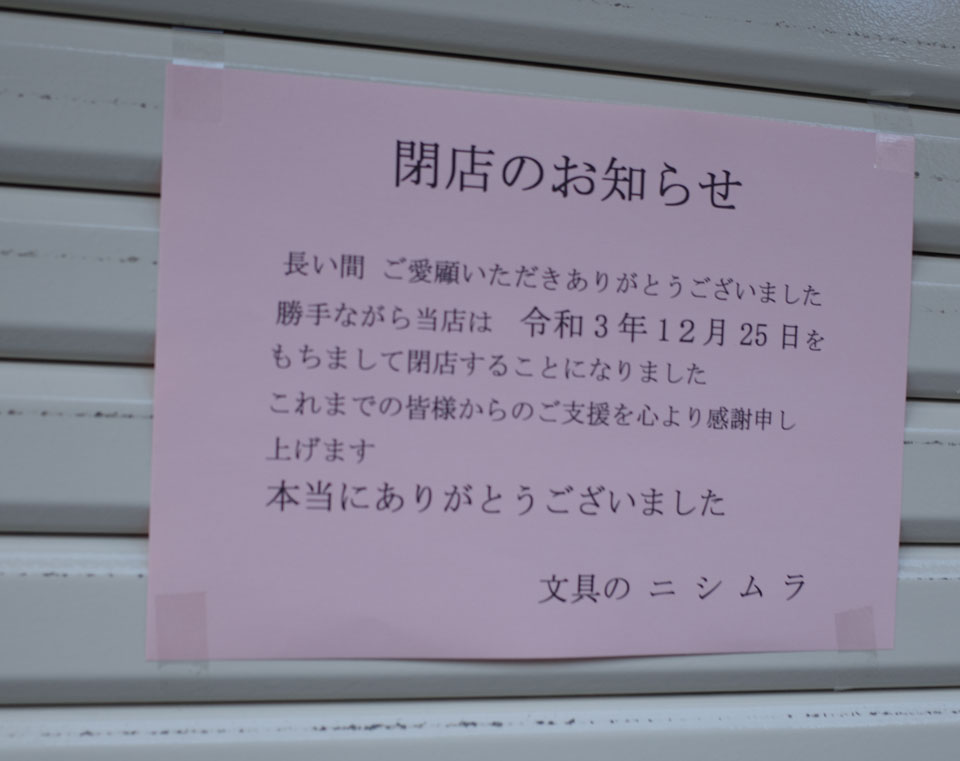 閉店のお知らせ
長い間 ご愛顧いただきありがとうございました
勝手ながら当店は 令和3年12月25日を
もちまして閉店することになりました
これまでの皆様からのご支援を心より感謝申し
上げます
本当にありがとうございました
文具の ニシムラ